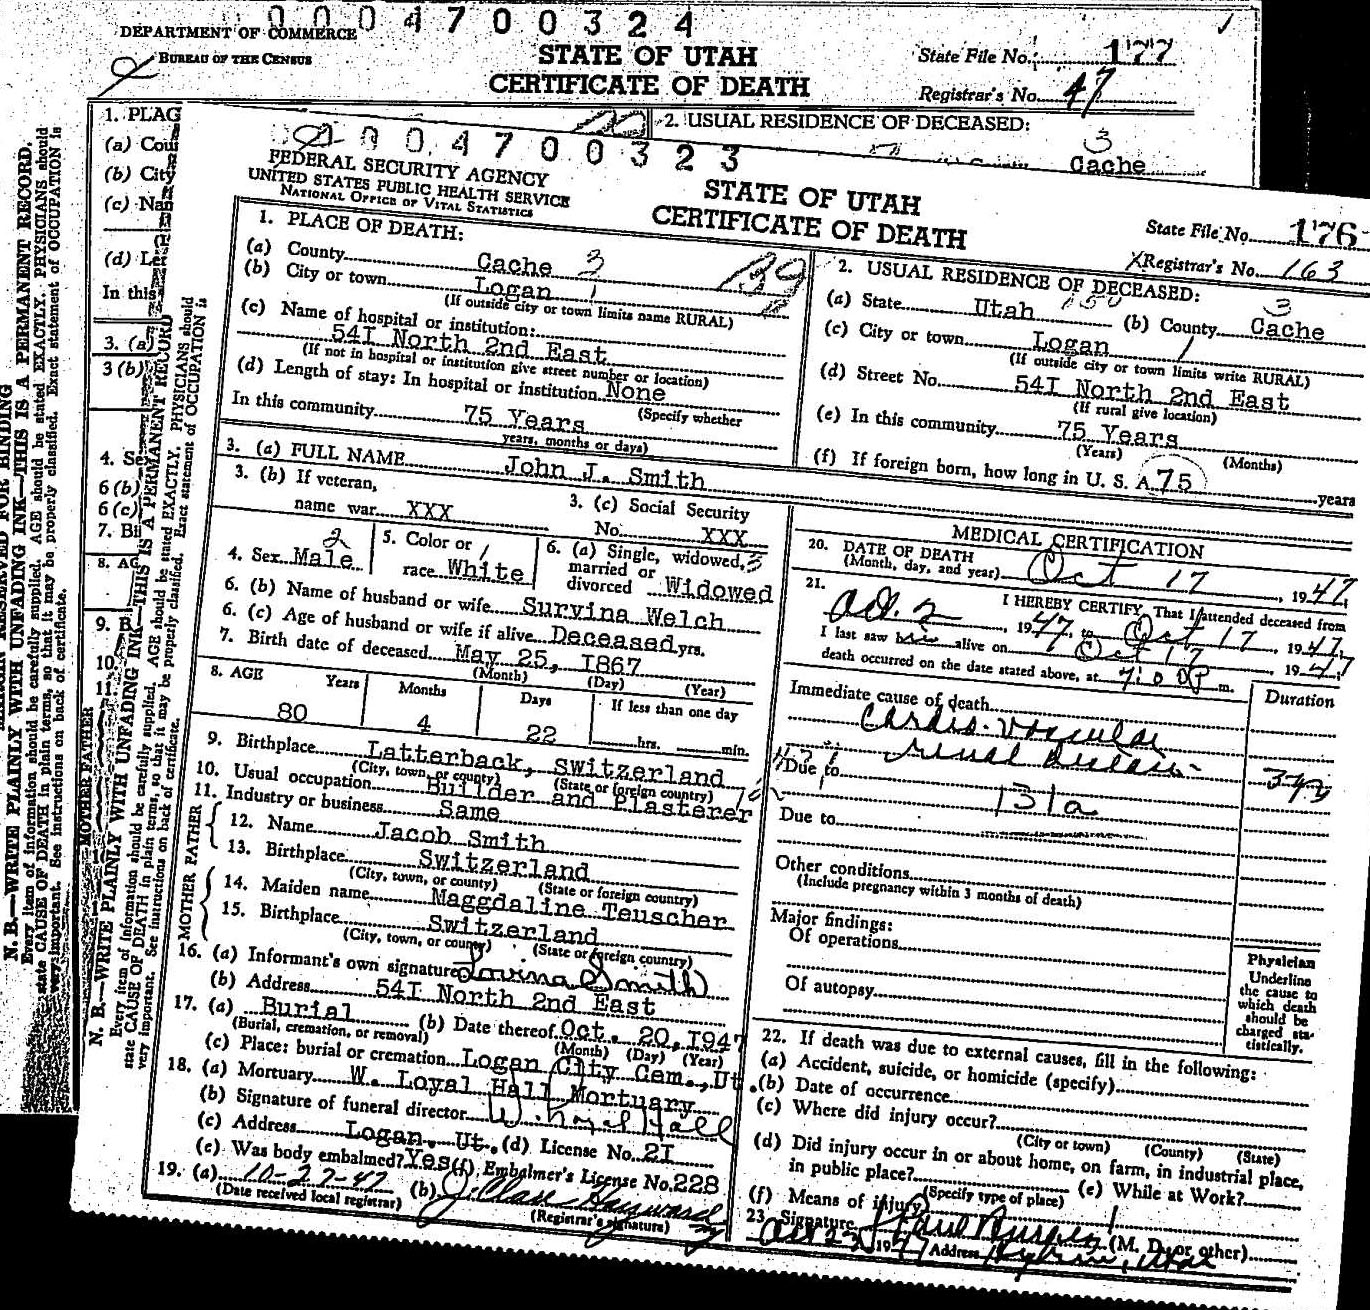 0 0 0 4 7 0 0 3 2 4
DEPARTMENT OF COMMERCE
BUREAU OF THE CENSUS
STATE OF UTAH
CERTIFICATE OF DEATH
State File No. 177
Registrar's No. 47
1. PLAG
(a) Cou
(b) City
(c) Nam
(d) Le
In this
3. (a)
3 (b)
4. Se
6 (b)
6 (c)
7. Bi
8. AG
9. B
10.
11.
2. USUAL RESIDENCE OF DECEASED:
3
Cache
N. B.—WRITE PLAINLY WITH UNFADING INK—THIS IS A PERMANENT RECORD.
Every item of information should be carefully supplied. AGE should be stated EXACTLY. PHYSICIANS should
state CAUSE OF DEATH in plain terms, so that it may be properly classified. Exact statement of OCCUPATION is
very important. See instructions on back of certificate.
MOTHER FATHER
N. B.—WRITE PLAINLY WITH UNFADING INK—THIS IS A PERMANENT RECORD
Every item of information should be carefully supplied. AGE should be stated EXACTLY. PHYSICIANS should
state CAUSE OF DEATH in plain terms, so that it may be properly classified. Exact statement of OCCUPATION is
very important. See instructions on back of certificate.
0 0 4 7 0 0 3 2 3
FEDERAL SECURITY AGENCY
UNITED STATES PUBLIC HEALTH SERVICE
NATIONAL OFFICE OF VITAL STATISTICS
STATE OF UTAH
CERTIFICATE OF DEATH
State File No. 176
Registrar's No. 163
1. PLACE OF DEATH:
(a) County Cache 3
(b) City or town Logan 1
(If outside city or town limits name RURAL)
139
(c) Name of hospital or institution:
54I North 2nd East
(If not in hospital or institution give street number or location)
(d) Length of stay: In hospital or institution None
(Specify whether
In this community 75 Years
years, months or days)
2. USUAL RESIDENCE OF DECEASED:
(a) State Utah 150 (b) County 3 Cache
(c) City or town Logan 1
(If outside city or town limits write RURAL)
(d) Street No. 54I North 2nd East
(If rural give location)
(e) In this community 75 Years
(Years) (Months)
(f) If foreign born, how long in U. S. A. 75 years
3. (a) FULL NAME John J. Smith
3. (b) If veteran,
name war XXX
3. (c) Social Security
No. XXX
4. Sex 2 Male
5. Color or 1
race White
6. (a) Single, widowed, 3
married or
divorced Widowed
6. (b) Name of husband or wife Survina Welch
6. (c) Age of husband or wife if alive Deceased yrs.
7. Birth date of deceased May 25, I867
(Month) (Day) (Year)
8. AGE Years Months Days If less than one day
80 4 22 hrs. min.
9. Birthplace Latterback, Switzerland
(City, town, or county) (State or foreign country)
10. Usual occupation Builder and Plasterer
11. Industry or business Same
FATHER
12. Name Jacob Smith
13. Birthplace Switzerland
(City, town, or county) (State or foreign country)
MOTHER
14. Maiden name Maggdaline Teuscher
15. Birthplace Switzerland
(City, town, or county) (State or foreign country)
16. (a) Informant's own signature Lovina Smith
(b) Address 54I North 2nd East
17. (a) Burial (b) Date thereof Oct. 20, I947
(Burial, cremation, or removal) (Month) (Day) (Year)
(c) Place: burial or cremation Logan City Cem., Ut
18. (a) Mortuary W. Loyal Hall Mortuary
(b) Signature of funeral director W. Loyal Hall
(c) Address Logan, Ut. (d) License No. 2I
(e) Was body embalmed? Yes (f) Embalmer's License No. 228
19. (a) 10-27-47 (b)
(Date received local registrar) (Registrar's signature)
MEDICAL CERTIFICATION
20. DATE OF DEATH
(Month, day, and year) Oct 17, 1947
21. I HEREBY CERTIFY, That I attended deceased from
Oct. 2, 1947, to Oct 17, 1947
I last saw him alive on Oct 17 1947
death occurred on the date stated above, at 7:00 P m.
Duration
Immediate cause of death
Cardio-Vascular
renal disease
Due to
131a
Due to
Other conditions
(Include pregnancy within 3 months of death)
Major findings:
Of operations
Of autopsy
Physician
Underline
the cause to
which death
should be
charged sta-
tistically.
22. If death was due to external causes, fill in the following:
(a) Accident, suicide, or homicide (specify)
(b) Date of occurrence
(c) Where did injury occur?
(City or town) (County) (State)
(d) Did injury occur in or about home, on farm, in industrial place,
in public place? (e) While at Work?
(Specify type of place)
(f) Means of injury
23. Signature (M. D. or other)
Oct 23, 1947 Address Hyrum, Utah